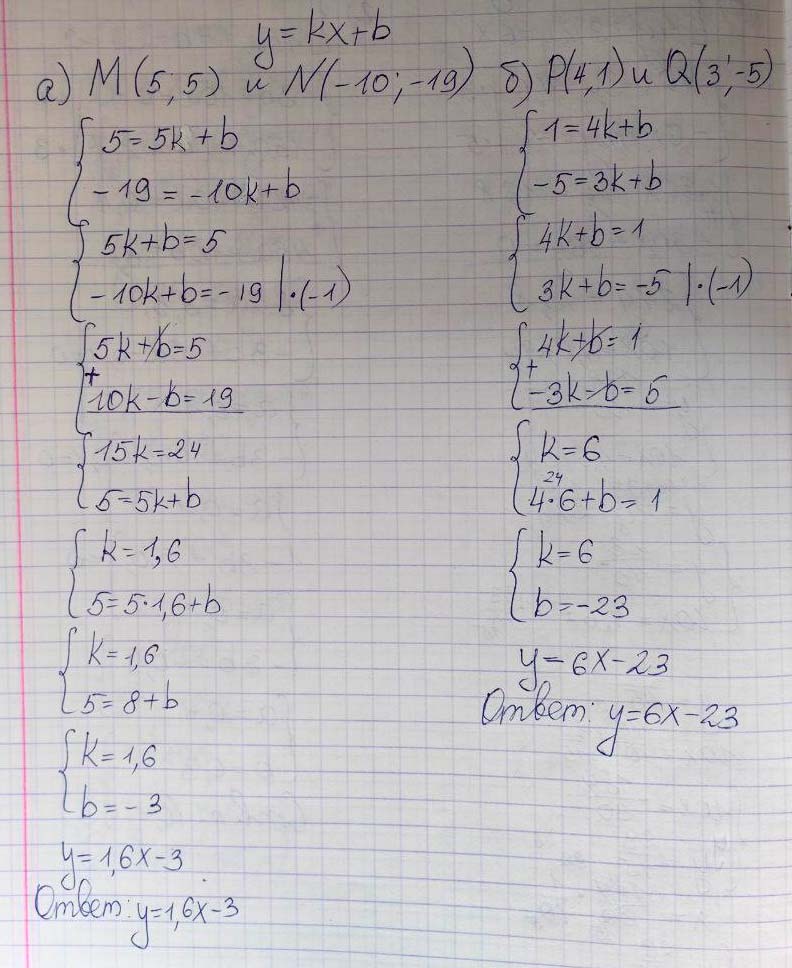 y=kx+b
а) M(5;5) и N(-10;-19)
{ 5=5k+b
-19=-10k+b
{ 5k+b=5
-10k+b=-19 |·(-1)
{ 5k+b=5
+
10k-b=19
{ 15k=24
5=5k+b
{ k=1,6
5=5·1,6+b
{ k=1,6
5=8+b
{ k=1,6
b=-3
y=1,6x-3
Ответ: y=1,6x-3
б) P(4;1) и Q(3;-5)
{ 1=4k+b
-5=3k+b
{ 4k+b=1
3k+b=-5 |·(-1)
{ 4k+b=1
+
-3k-b=5
{ k=6
24
4·6+b=1
{ k=6
b=-23
y=6x-23
Ответ: y=6x-23